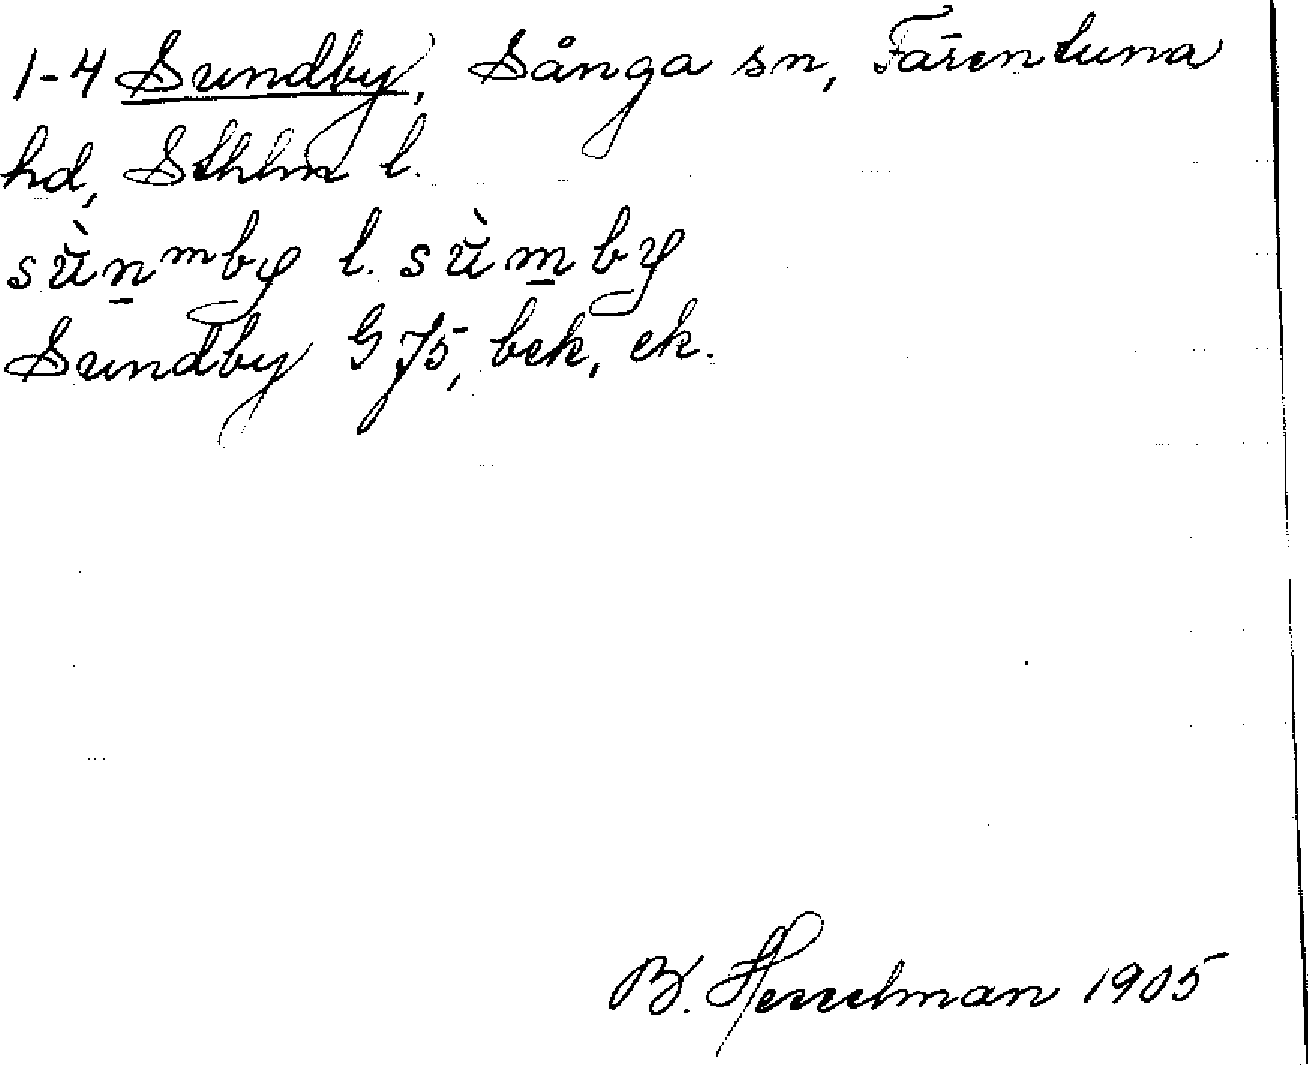 1-4 Sundby, Sånga sn, Färentuna
hd, Sthlm l.
sùn̲ᵐby l. sùm̲by
Sundby G J5, bek, ek.
B. Hesselman 1905